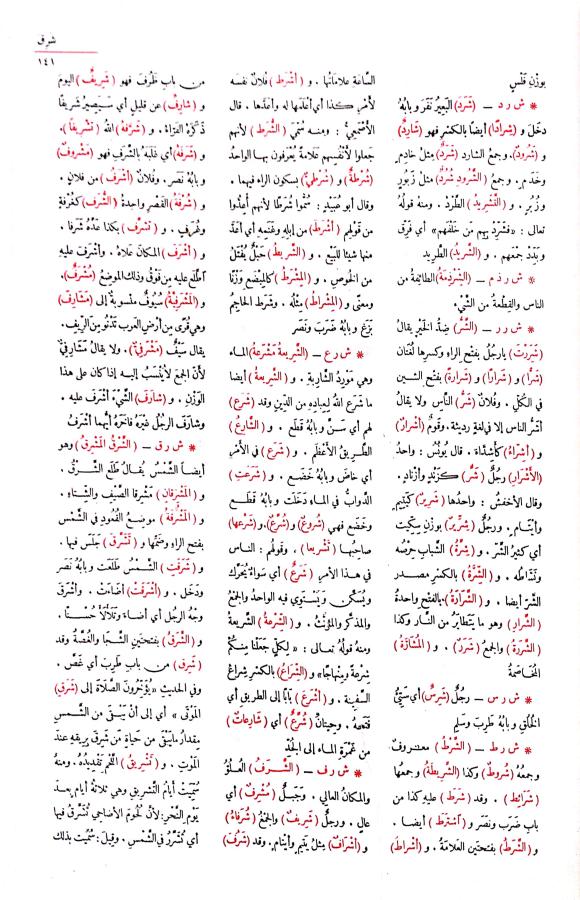 شرق
١٤١
بوزن فَلْس
* ش ر د – (شَرَدَ) البَعِيرُ نَفَر وبابُه
دخَل و (شِرَادًا) أيضا بالكسْر فهو (شَارِدٌ)
و (شَرُودٌ) . وجمعُ الشارد (شَرَدٌ) مثلُ خادِم
وخَدَم . وجمعُ (الشَّرُودِ شُرُدٌ) مثلُ زَبُور
وزُبُر . و (التَّشْرِيدُ) الطَّرْدُ . ومنه قولُه
تعالى : «فَشَرِّدْ بِهِم مَن خَلْفَهم» أي فَرِّق
وبَدِّد جمْعَهم . و (الشَّرِيدُ) الطَّرِيد
* ش ر ذ م – (الشِّرْذِمَةُ) الطائفةُ من
الناس والقِطعةُ من الشَّيْء
* ش ر ر – (الشَّرُّ) ضِدُّ الخَيْر يقالُ
(شَرَرْتَ) يارجُلُ بفتح الراء وكسرها لُغَتان
(شَرًّا) و (شَرَرًا) و (شَرَارَةً) بفتح الشين
في الكُلّ . وفُلانٌ (شَرُّ) النَّاس ولا يقالُ
أشَرُّ الناس إلا في لغةٍ رديئة . وقومٌ (أشْرارٌ)
و (أشِرَّاءُ) كأشِدَّاء . قال يُونُسُ : واحدُ
(الأشْرارِ) رجُلٌ (شَرٌّ) كزَنْدٍ وأزْناد .
وقال الأخفش : واحدُها (شَرِيرٌ) كيَتِيم
وأيْتام . ورجُلٌ (شِرِّيرٌ) بوزن سِكِّيت
أي كثيرُ الشَّرّ . و (شِرَّةُ) الشَّباب حِرْصُه
ونَشاطُه . و (الشِّرَّةُ) بالكسر مصدر
الشَّرّ أيضا . و (الشَّرَارَةُ) بالفتح واحدةُ
(الشَّرارِ) وهو ما يَتطايَرُ من النَّار وكذا
(الشَّرَرَةُ) والجمعُ (شَرَرٌ) . و (المُشَارَّةُ)
المُخَاصَمةُ
* ش ر س – رجُلٌ (شَرِسٌ) أي سَيِّئُ
الخُلُقِ وبابُه طَرِبَ وسَلِم
* ش ر ط – (الشَّرْطُ) معروفٌ
وجمعُهُ (شُروطٌ) وكذا (الشَّرِيطَةُ) وجمعُها
(شَرَائِط) . وقد (شَرَطَ) عليه كذا من
باب ضَرَبَ ونَصَر و (اشْتَرَطَ) أيضا .
و (الشَّرَطُ) بفتحتين العَلامَةُ . و (أشْراطُ)
السَّاعةِ علاماتُها . و (أشْرَطَ) فُلانٌ نَفسَه
لأمْر كذا أي أعْلَمَها له وأعَدَّها . قال
الأصْمَعِيُّ : ومنه سُمِّيَ (الشُّرَطُ) لأنهم
جَعلوا لأنْفُسِهم عَلَامةً يُعْرَفُون بها الواحدُ
(شُرْطَةٌ) و (شُرْطِيٌّ) بسكون الراء فيهما .
وقال أبو عُبَيد : سُمُّوا شُرَطًا لأنهم أُعِدُّوا
من قولِهم (أشْرَطَ) من إبِله وغَنَمِه أي أعَدَّ
منها شيئا للبَيْع . و (الشَّرِيطُ) حَبْلٌ يُفْتَلُ
من الخُوص . و (المِشْرَطُ) كالمِبْضَعِ وَزْنًا
ومعنًى و (المِشْرَاطُ) مِثْلُه . وشَرَط الحاجِمُ
بَزَغ وبابُه ضَرَب ونَصَر
* ش ر ع – (الشَّرِيعةُ مَشْرَعةُ) الماء
وهي مَوْرِدُ الشَّارِبةِ . و (الشَّرِيعةُ) أيضا
ما شَرَعَ اللهُ لِعِبادِه من الدِّين وقد (شَرَعَ)
لهم أي سَنَّ وبابُه قَطَع . و (الشَّارِعُ)
الطَّريقُ الأعْظَم . و (شَرَعَ) في الأمْر
أي خاضَ وبابُه خَضَع . و (شَرَعَتِ)
الدَّوابُّ في الماء دَخَلَت وبابُه قَطَع
وخَضَع فهي (شُرُوعٌ) و (شُرَّعٌ) . و (شَرَّعَها)
صاحِبُها (تَشْرِيعا) . وقولُهم : الناس
في هذا الأمرِ (شَرَعٌ) أي سَوَاءٌ يُحَرَّك
ويُسَكَّن ويَسْتَوِي فيه الواحدُ والجَمْعُ
والمذَكَّر والمُؤَنَّث . و (الشِّرْعةُ) الشَّرِيعةُ
ومنه قولُه تعالى : «لِكُلٍّ جَعَلْنا مِنكُم
شِرْعةً ومِنْهاجا» و (الشِّرَاعُ) بالكسْر شِرَاعُ
السفينة . و (أشْرَعَ) بَابًا إلى الطريق أي
فَتَحه . وحِيتانٌ (شُرَّعٌ) أي (شَارِعَاتٌ)
من غَمْرَة الماء إلى الجُدّ
* ش ر ف – (الشَّرَفُ) العُلُوُّ
والمكانُ العالي . وجَبَلٌ (مُشْرِفٌ) أي
عالٍ . ورجُلٌ (شَرِيفٌ) والجمْعُ (شُرَفَاءُ)
و (أشْرَافٌ) مثلُ يَتِيم وأيْتام . وقد (شَرُفَ)
من باب ظَرُف فهو (شَرِيفٌ) اليومَ
و (شَارِفٌ) عن قليلٍ أي سيَصِيرُ شريفًا
ذكَره الفَرَّاء . و (شَرَّفَهُ) اللهُ (تَشْرِيفًا) .
و (شَرَفَهُ) أي غلَبَه بالشَّرَف فهو (مَشْرُوفٌ)
وبابُه نَصَر . وفُلانٌ (أشْرَفُ) من فلان .
و (شُرْفَةُ) القَصْر واحدةُ (الشُّرَفِ) كغُرْفةٍ
وغُرَف . و (تَشَرَّفَ) بكذا عَدَّه شَرَفا .
و (أشْرَفَ) المكانَ عَلاه . وأشْرَف عليه
اطَّلَع عليه من فَوْق وذلك الموضعُ (مُشْرَفٌ)
و (المَشْرَفِيَّةُ) سُيُوفٌ منسوبةٌ إلى (مَشَارِفَ)
وهي قُرًى من أرْضِ العرب تَدْنُو من الرِّيف .
يقال سيْفٌ (مَشْرَفِيٌّ) . ولا يقالُ مَشَارِفِيٌّ
لأنَّ الجمعَ لا يُنْسَبُ إليه إذا كان على هذا
الوَزْن . و (شَارَفَ) الشَّيْءَ أشرف عليه .
وشارَفَ الرجُلُ غيرَه فاخَرَهُ أيُّهما أشرَفُ
* ش ر ق – (الشَّرْقُ المَشْرِقُ) وهو
أيضًا الشَّمْسُ يُقالُ طَلَع الشَّرْق .
و (المَشْرِقانِ) مَشْرِقا الصَّيْف والشِّتاءِ .
و (المَشْرُقَةُ) موضعُ القُعودِ في الشَّمْس
بفتح الراء وضمِّها و (تَشَرَّقَ) جلَس فيها .
و (شَرَقَتِ) الشمسُ طَلَعَت وبابُه نَصَر
ودخَل . و (أشْرَقَتْ) أضاءَتْ . وأشْرَقَ
وجْهُ الرجُلِ أي أضاء وتَلَأْلَأَ حُسْنًا .
و (الشَّرَقُ) بفتحتين الشَّجا والغُصَّةُ وقد
(شَرِقَ) من باب طَرِبَ أي غَصَّ .
وفي الحديثِ «يُؤَخِّرونَ الصَّلاةَ إلى (شَرَقِ)
المَوْتَى» أي إلى أنْ يَبْقَى من الشَّمْس
مِقدارُ ما يَبْقَى من حَياةِ مَن شَرِقَ بِرِيقِه عندَ
المَوْتِ . و (تَشْرِيقُ) اللَّحْمِ تَقْدِيدُه . ومنه
سُمِّيَتْ أيَّامُ التَّشريق وهي ثلاثةُ أيامٍ بعدَ
يَوْمِ النَّحْر : لأنَّ لُحُومَ الأضاحي تُشَرَّقُ فيها
أي تُشَرَّرُ في الشَّمْس . وقيل : سُمِّيَت بذلك